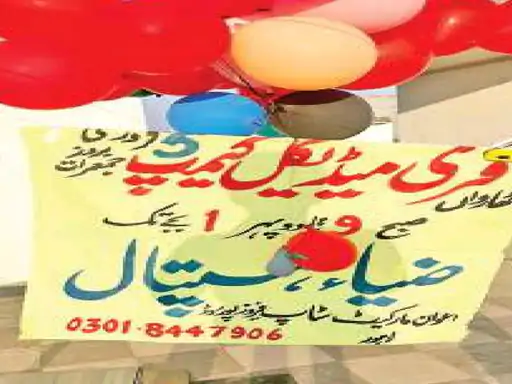 فری میڈیکل کیمپ 5 فروری بروز جمعرات
صبح 9 تا دوپہر 1 بجے تک
ضیاء ہسپتال
اعوان مارکیٹ شاپ فیروزپور روڈ لاہور
0301-8447906